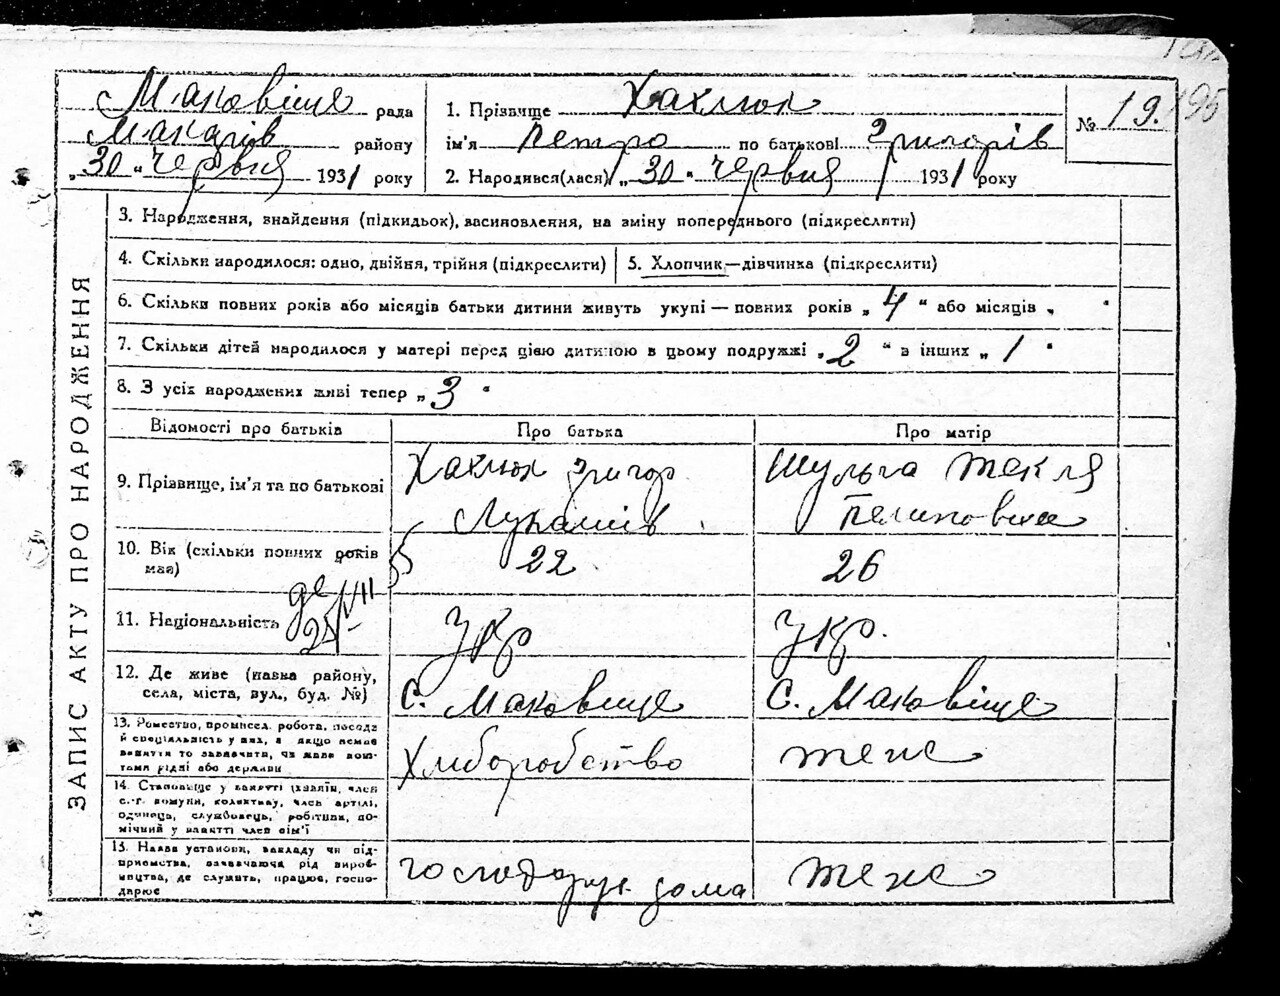 с Маковіще рада
Макарів району
„30“ червня 1931 року
1. Прізвище Хахлюк
ім'я Петро по батькові Григорів
2. Народився(лася) „30“ червня 1931 року
№ 19. 195
ЗАПИС АКТУ ПРО НАРОДЖЕННЯ
3. Народження, знайдення (підкидьок), засиновлення, на зміну попереднього (підкреслити)
4. Скільки народилося: одно, двійня, трійня (підкреслити)
5. Хлопчик—дівчинка (підкреслити)
6. Скільки повних років або місяців батьки дитини живуть укупі — повних років „4“ або місяців „ “
7. Скільки дітей народилося у матері перед цією дитиною в цьому подружжі „2“ з інших „1“
8. З усіх народжених живі тепер „3“
Відомості про батьків
Про батька
Про матір
9. Прізвище, ім'я та по батькові
Хахлюк Григор
Лукашів
Шульга Текля
Пилиповна
10. Вік (скільки повних років
має)
22
26
11. Національність
Укр
Укр.
12. Де живе (назва району,
села, міста, вул., буд. №)
С. Маковище
С. Маковіще
13. Ремество, промисел, робота, посада
й спеціяльність у них, а якщо немає
заняття то зазначити, чи живе кош-
тами рідні або держави
Хлиборобство
теж
14. Становище у занятті (хазяїн, член
с.-г. комуни, колективу, член артілі,
одинець, службовець, робітник, по-
мічний у занятті член сім'ї
15. Назва установи, закладу чи під-
приємства, зазначаючи рід вироб-
ництва, де служить, працює, госпо-
дарює
господарує дома
теж